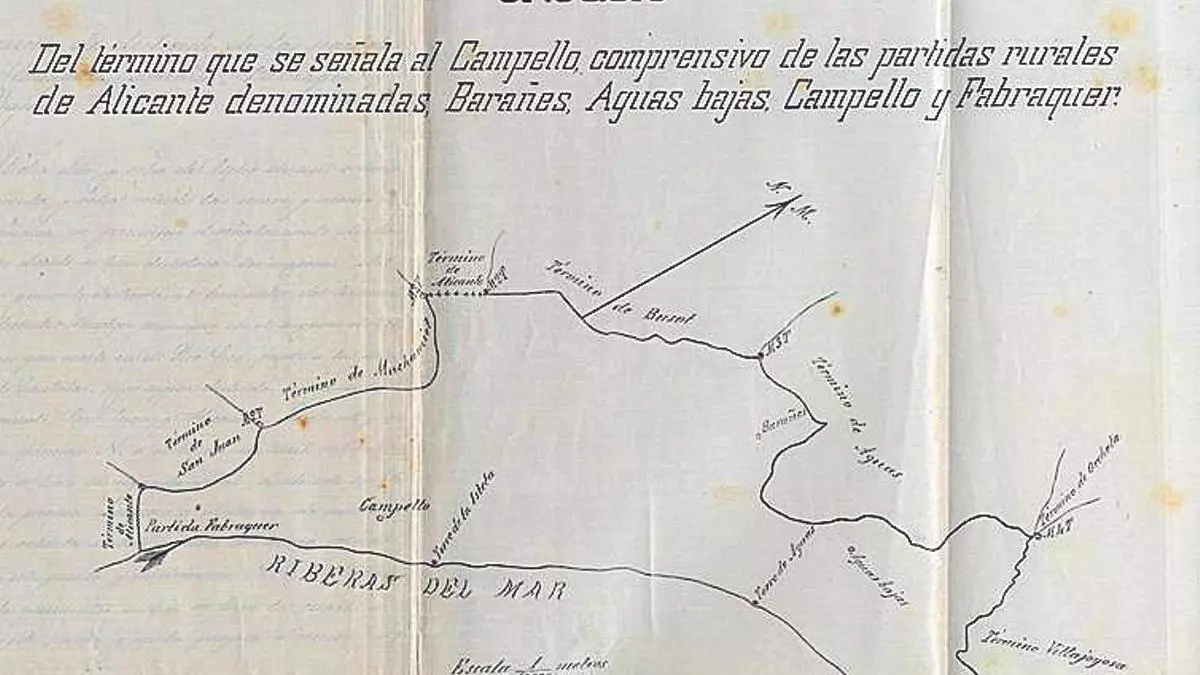 Del término que se señala al Campello, comprensivo de las partidas rurales
de Alicante denominadas, Barañes, Aguas bajas, Campello y Fabraquer.
N.
M.
Término
de
Alicante
M3T
Término
de Busot
M3T
Término de Muchamiel
Término
de
San Juan
M3T
Término de Aguas
Barañes
Término de Orcheta
M4T
Término
de
Alicante
Partida Fabraquer
Campello
Torre de la Isleta
Torre de Aguas
Aguas bajas
RIBERAS DEL MAR
Término Villajoyosa
Escala 1 metros